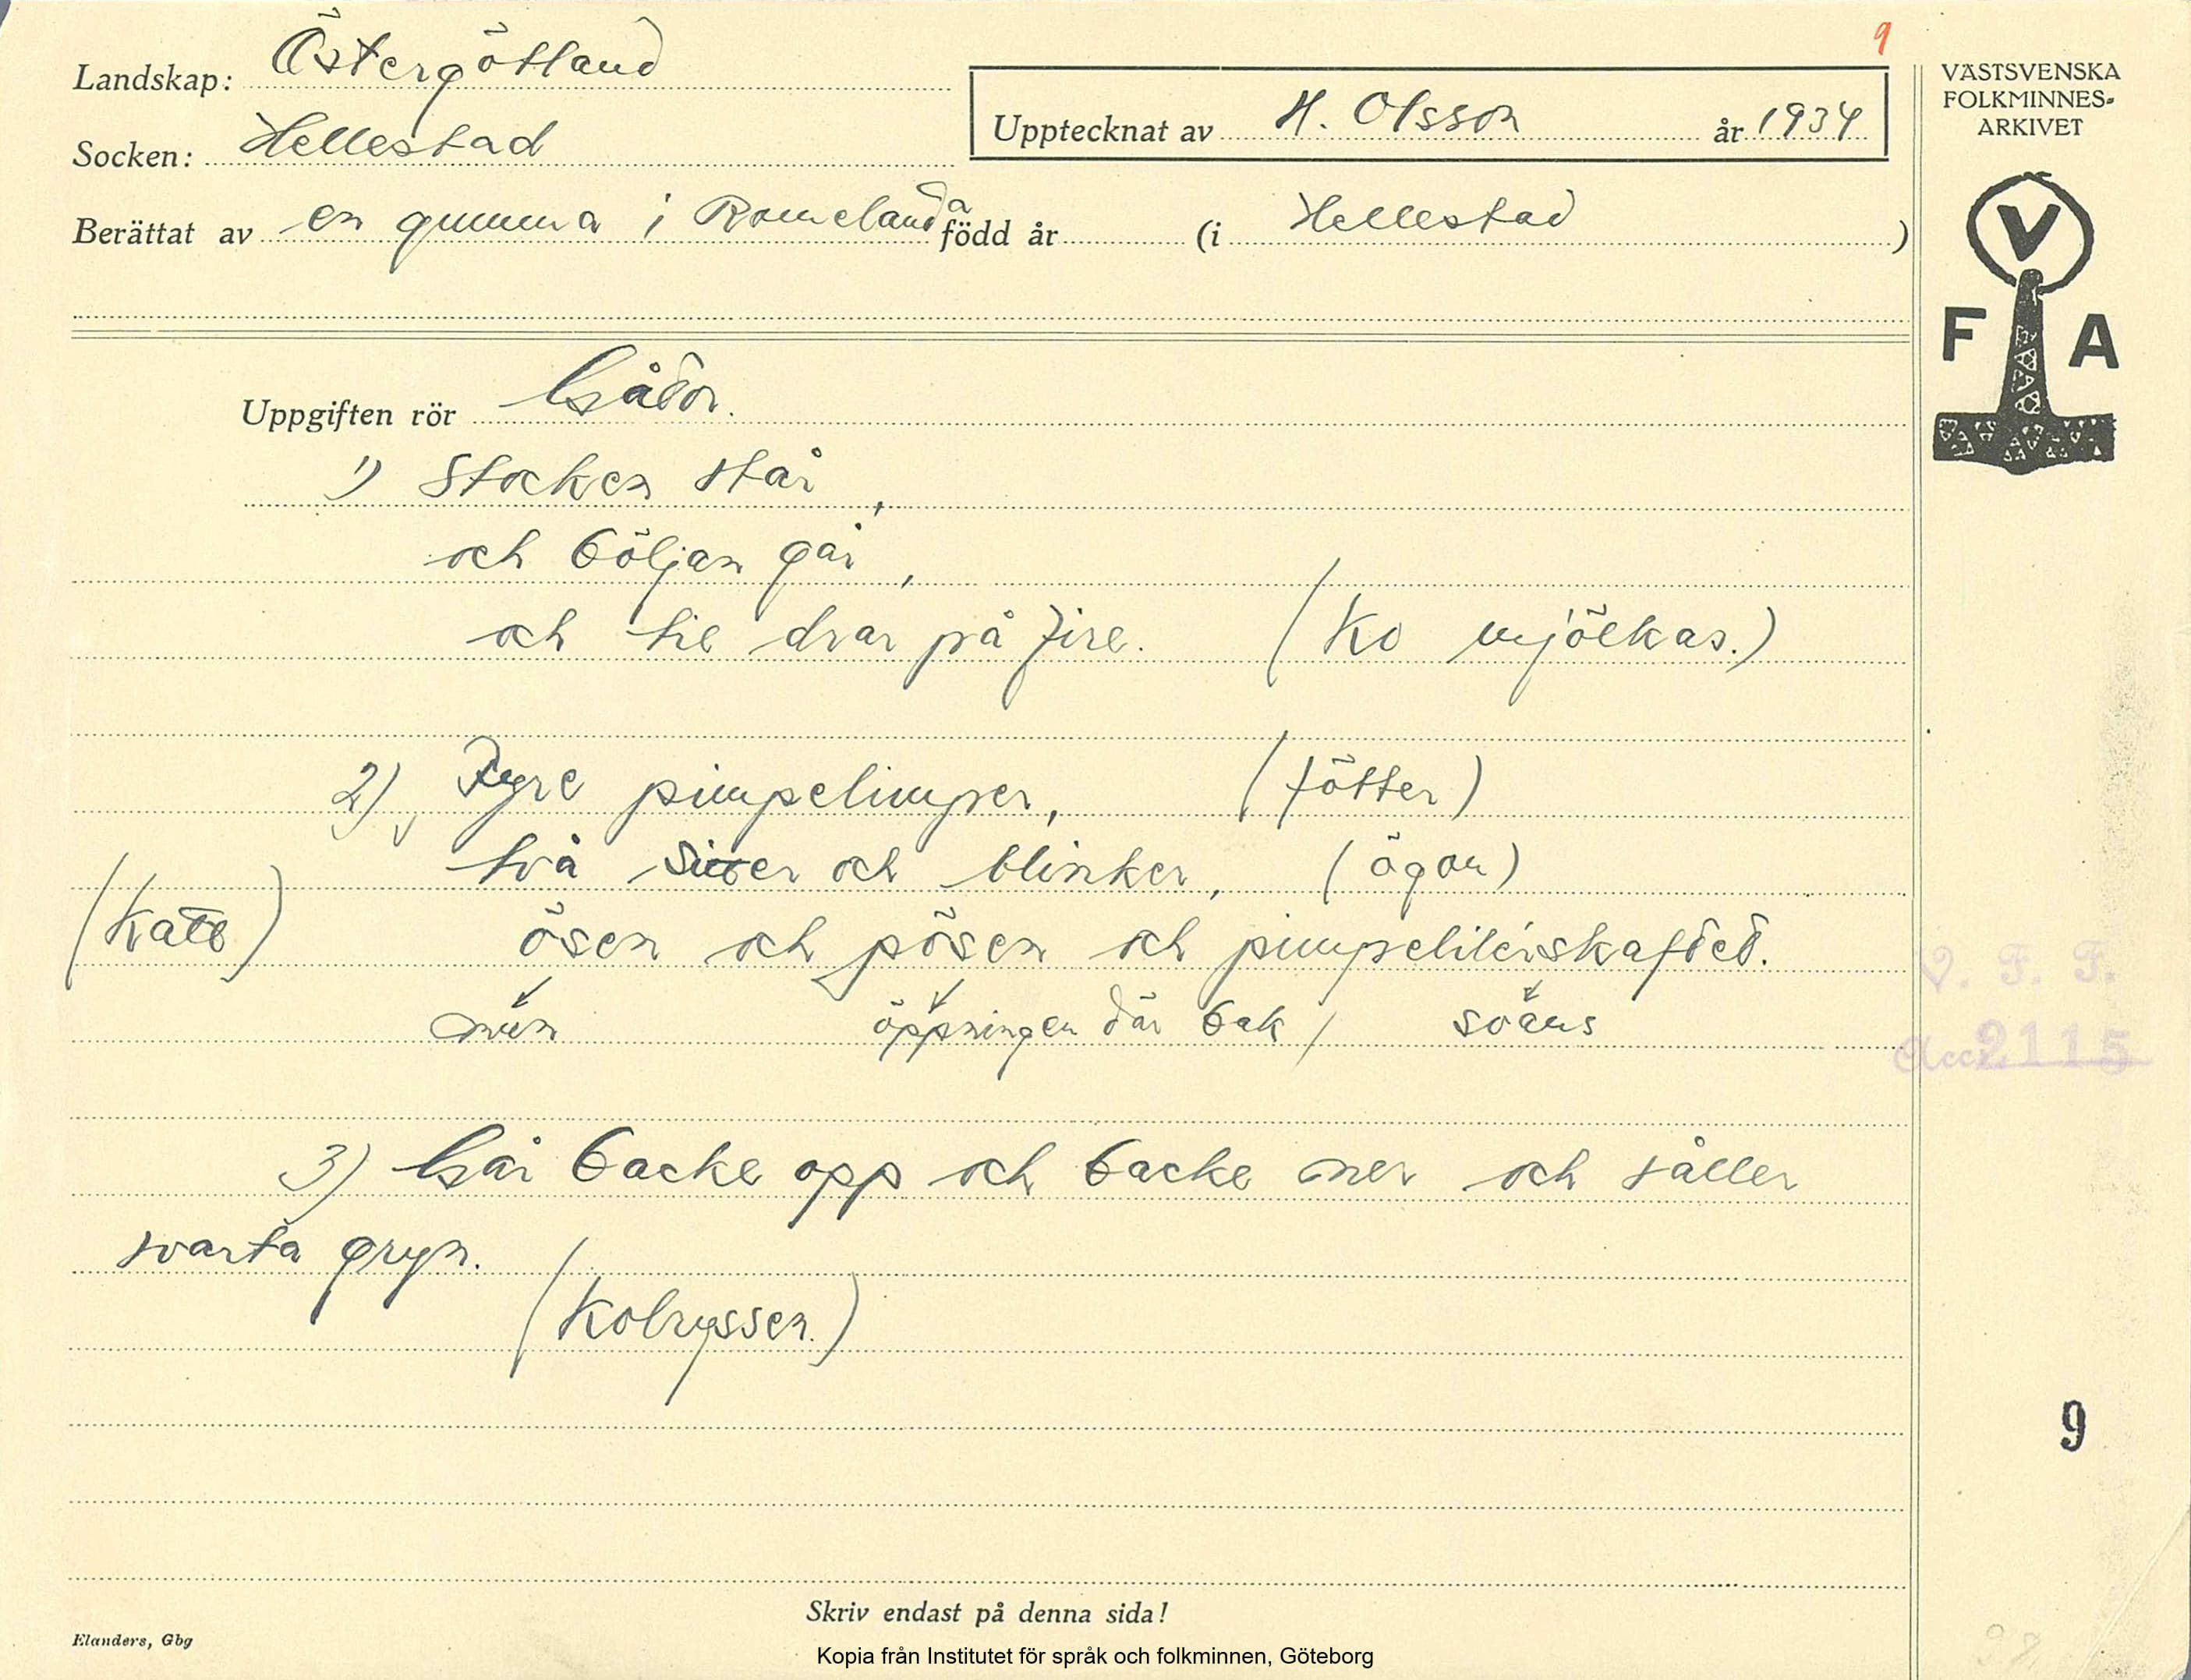 9
Landskap: Östergötland
Socken: Hellestad
Upptecknat av H. Olsson år 1934
Berättat av en gumma i Romelanda född år (i Hellestad)
VÄSTSVENSKA
FOLKMINNES-
ARKIVET
V
F A
Uppgiften rör Gåtor.
1) Stocken står,
och böljan går,
och tie drar på fire. (Ko mjölkas.)
2) Fyre pimpelimper, (fötter)
två sitter och blinker, (ögon)
(Katt) ösen och pösen och pimpeliterskaftet.
mun öppningen där bak / svans
V. F. F.
Acc. 2115
3) Går backe opp och backe ner och såller
svarta gryn.
(Kolryssen.)
9
Skriv endast på denna sida!
Elanders, Gbg
Kopia från Institutet för språk och folkminnen, Göteborg